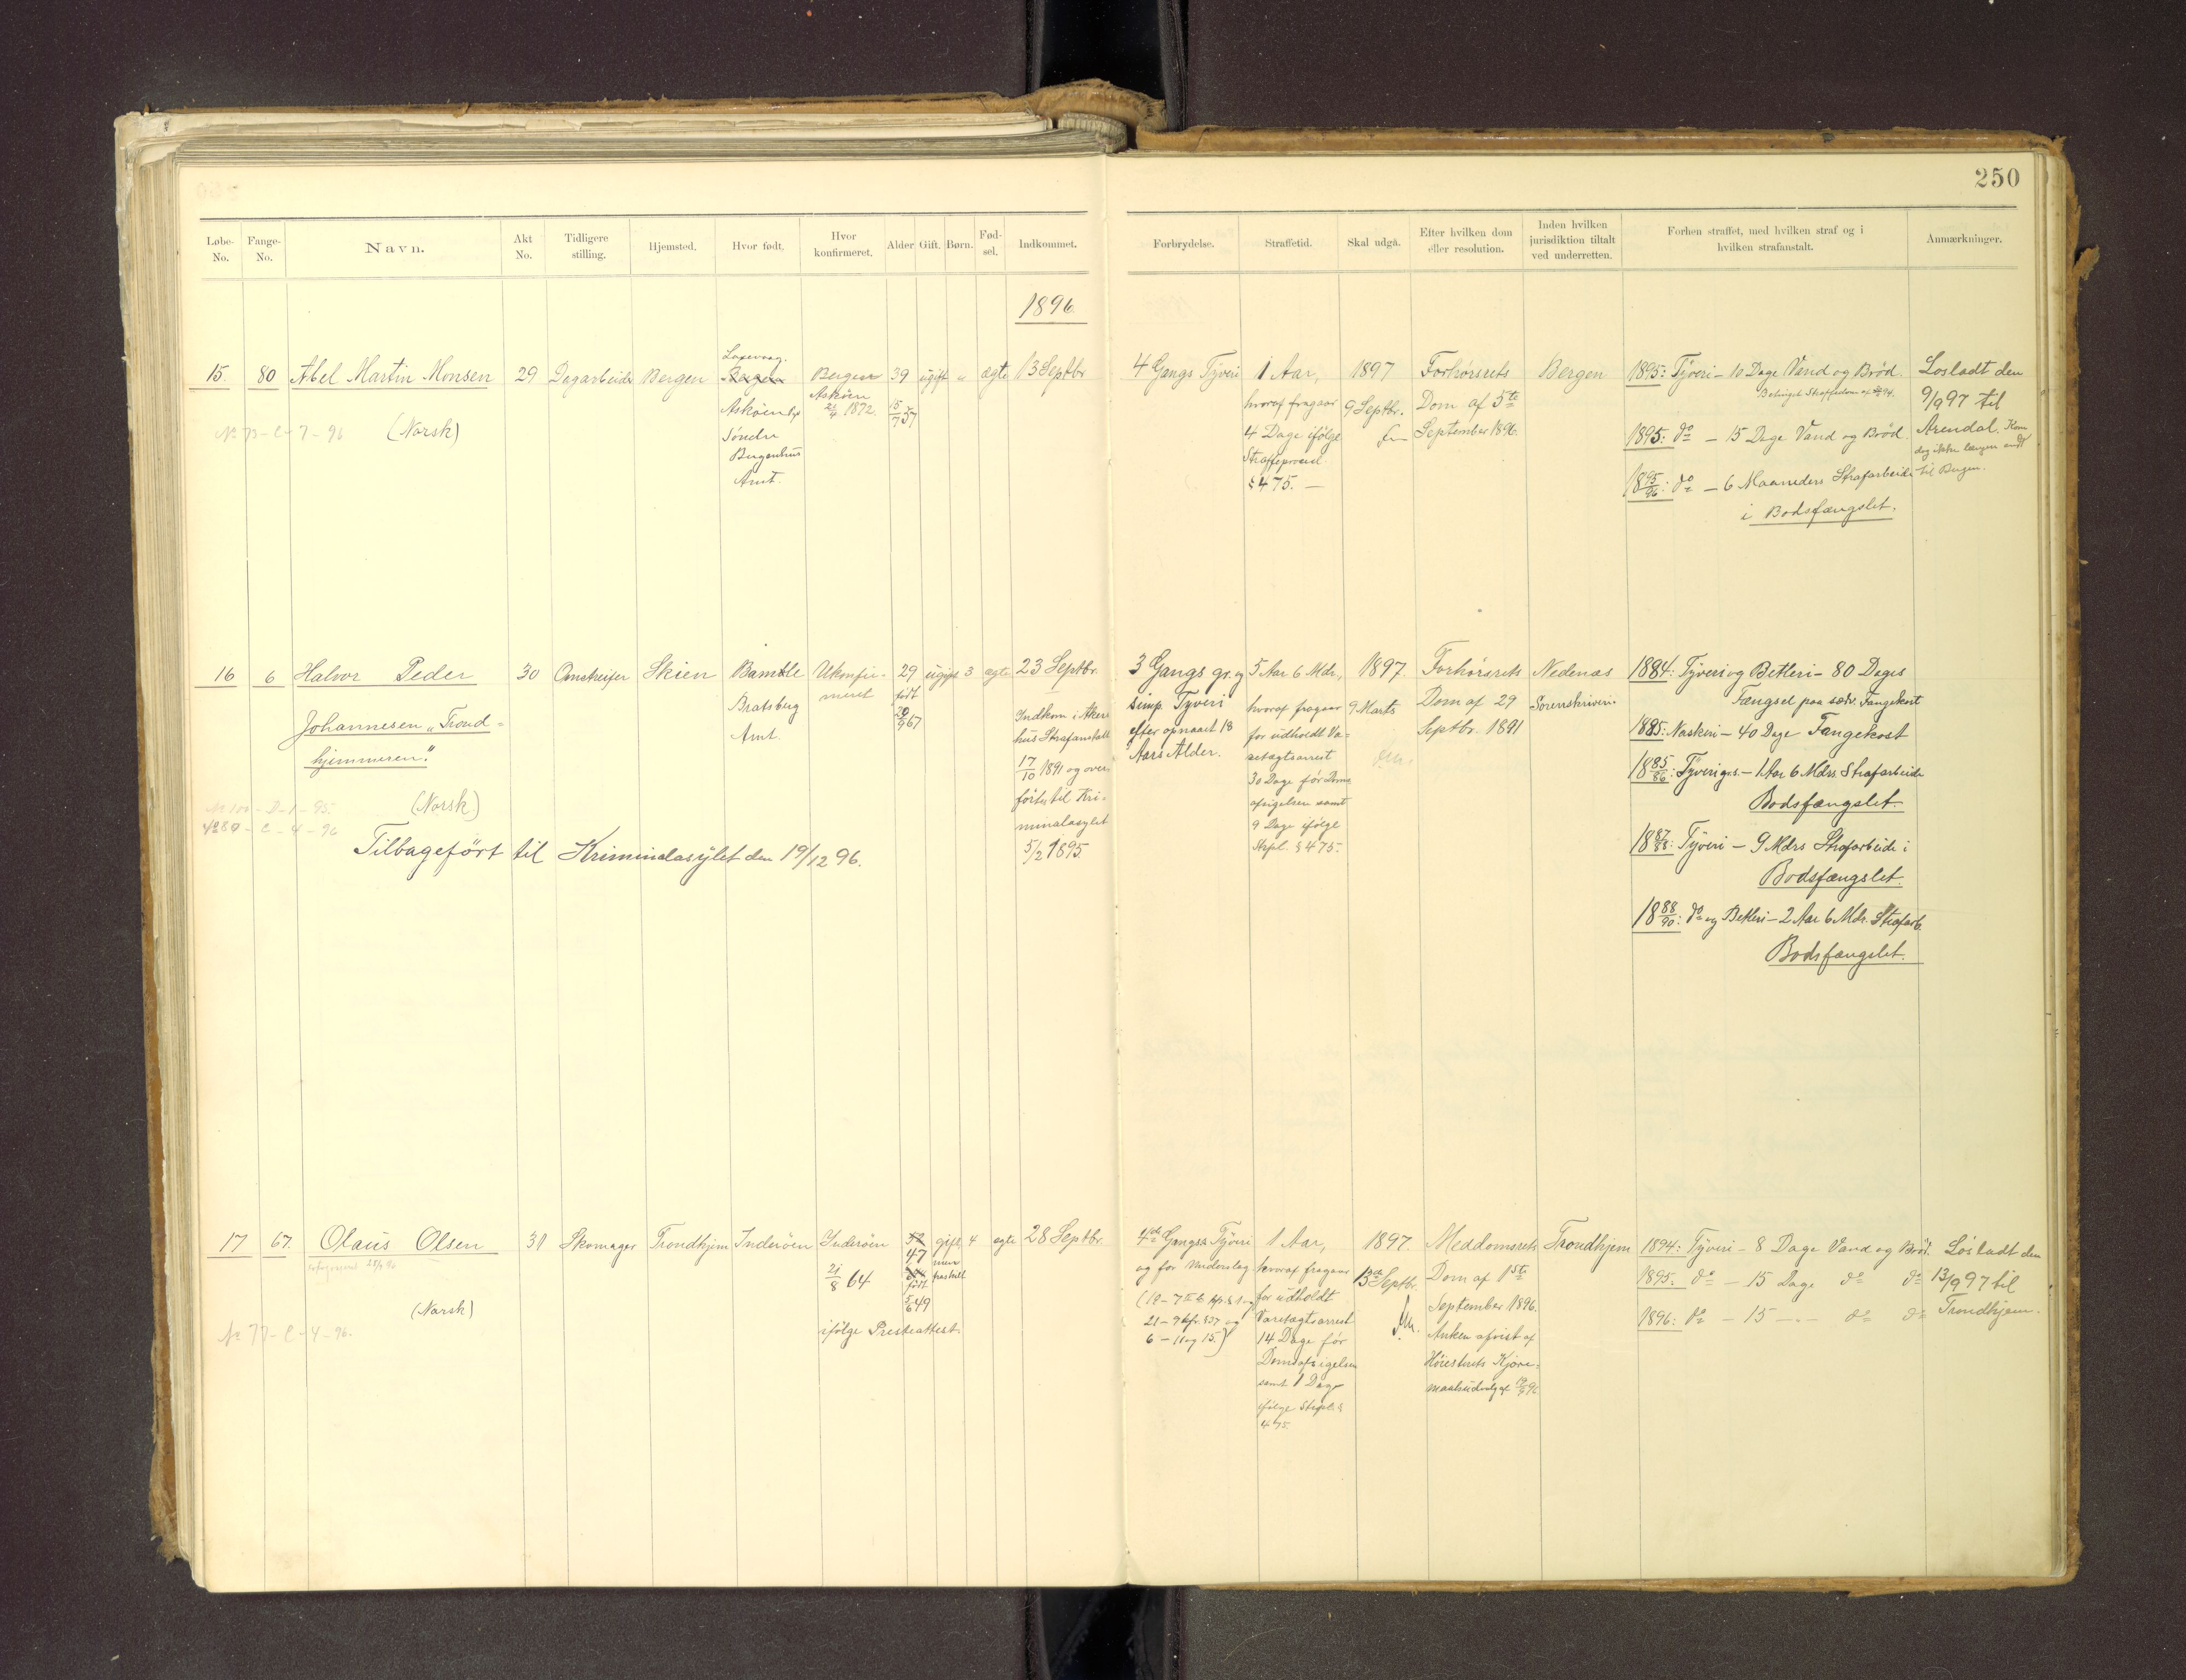 250
Løbe-No.
Fange-No.
Navn.
Akt No.
Tidligere stilling.
Hjemsted.
Hvor født.
Hvor konfirmeret.
Alder.
Gift.
Børn.
Fød-sel.
Indkommet.
Forbrydelse.
Straffetid.
Skal udgå.
Efter hvilken dom eller resolution.
Inden hvilken jurisdiktion tiltalt ved underretten.
Forhen straffet, med hvilken straf og i hvilken strafanstalt.
Anmærkninger.
1896
15.
80
Abel Martin Monsen
(Norsk)
No 73-C-7-96
29
Dagarbeider
Bergen
Laxevaag.
Bergen
Askøen
Søndre
Bergenhus
Amt.
Bergen
Askøen
1872.
39
15/7 57
ugift
"
ægte
13 Septbr
4 Gangs Tyveri
1 Aar,
hvoraf fragaar
4 Dage ifølge
Straffeproced.
§ 475. —
1897
9 Septbr.
Forhørsrets
Dom af 5te
September 1896.
Bergen
1895: Tyveri – 10 Dage Vand og Brød.
1895: do – 15 Dage Vand og Brød.
1895/96: do – 6 Maaneders Strafarbeide
i Bodsfængslet.
Løsladt den
9/9 97 til
Arendal. Kom
dog ikke længer end
til Bergen.
16
6
Halvor Peder
Johannesen „Trond=
hjemmeren".
(Norsk)
No 100-D-1-95.
No 80-C-4-96
Tilbageført til Kriminalasylet den 19/12 96.
30
Omstreifer
Skien
Bamble
Bratsberg
Amt.
Ukonfir-
meret
29
født
20/9 67
ugift
3
ægte
23 Septbr.
Indkom i Akers
hus Strafanstalt
17/10 1891 og over
førtes til Kri-
minalasylet
5/2 1895.
3 Gangs gr. og
simp. Tyveri
efter opnaaet 18
Aars Alder.
5 Aar 6 Mdr,
hvoraf fragaar
for udholdt Va=
retægtsarrest
30 Dage før Doms
afsigelsen samt
9 Dage ifølge
Strfpl. § 475.
1897.
9 Marts
Forhørsrets
Dom af 29
Septbr. 1891
Nedenæs
Sorenskriveri
1884: Tyveri og Betleri – 80 Dages
Fængsel paa sædv. Fangekost
1885: Naskeri – 40 Dage Fangekost
1885/86: Tyveri gr. – 1 Aar 6 Mdrs. Strafarbeide
Bodsfængslet.
1887/88: Tyveri – 9 Mdrs Strafarbeide i
Bodsfængslet.
1888/90: do og Betleri – 2 Aar 6 Mdr. Strafarb.
Bodsfængslet.
17
67.
Olaus Olsen
(Norsk)
No 77-C-4-96.
31
Skomager
Trondhjem
Inderøen
Inderøen
21/8 64
52
47
født
5/6 49
ifølge Presteattest.
gift,
men
fraskilt
4
ægte
28 Septbr.
4de Gangs Tyveri
og for Underslag
1 Aar,
hvoraf fragaar
for udholdt
Varetægtsarrest
14 Dage før
Domsafsigelsen
samt 1 Dag
ifølge Strfpl. §
475.
1897.
13de Septbr.
Meddomsrets
Dom af 1ste
September 1896.
Anken afvist af
Høiesterets Kjære=
maalsudvalg
Trondhjem
1894: Tyveri – 8 Dage Vand og Brød.
1895: do – 15 Dage do do
1896: do – 15 – do do
Løsladt den
13/9 97 til
Trondhjem.